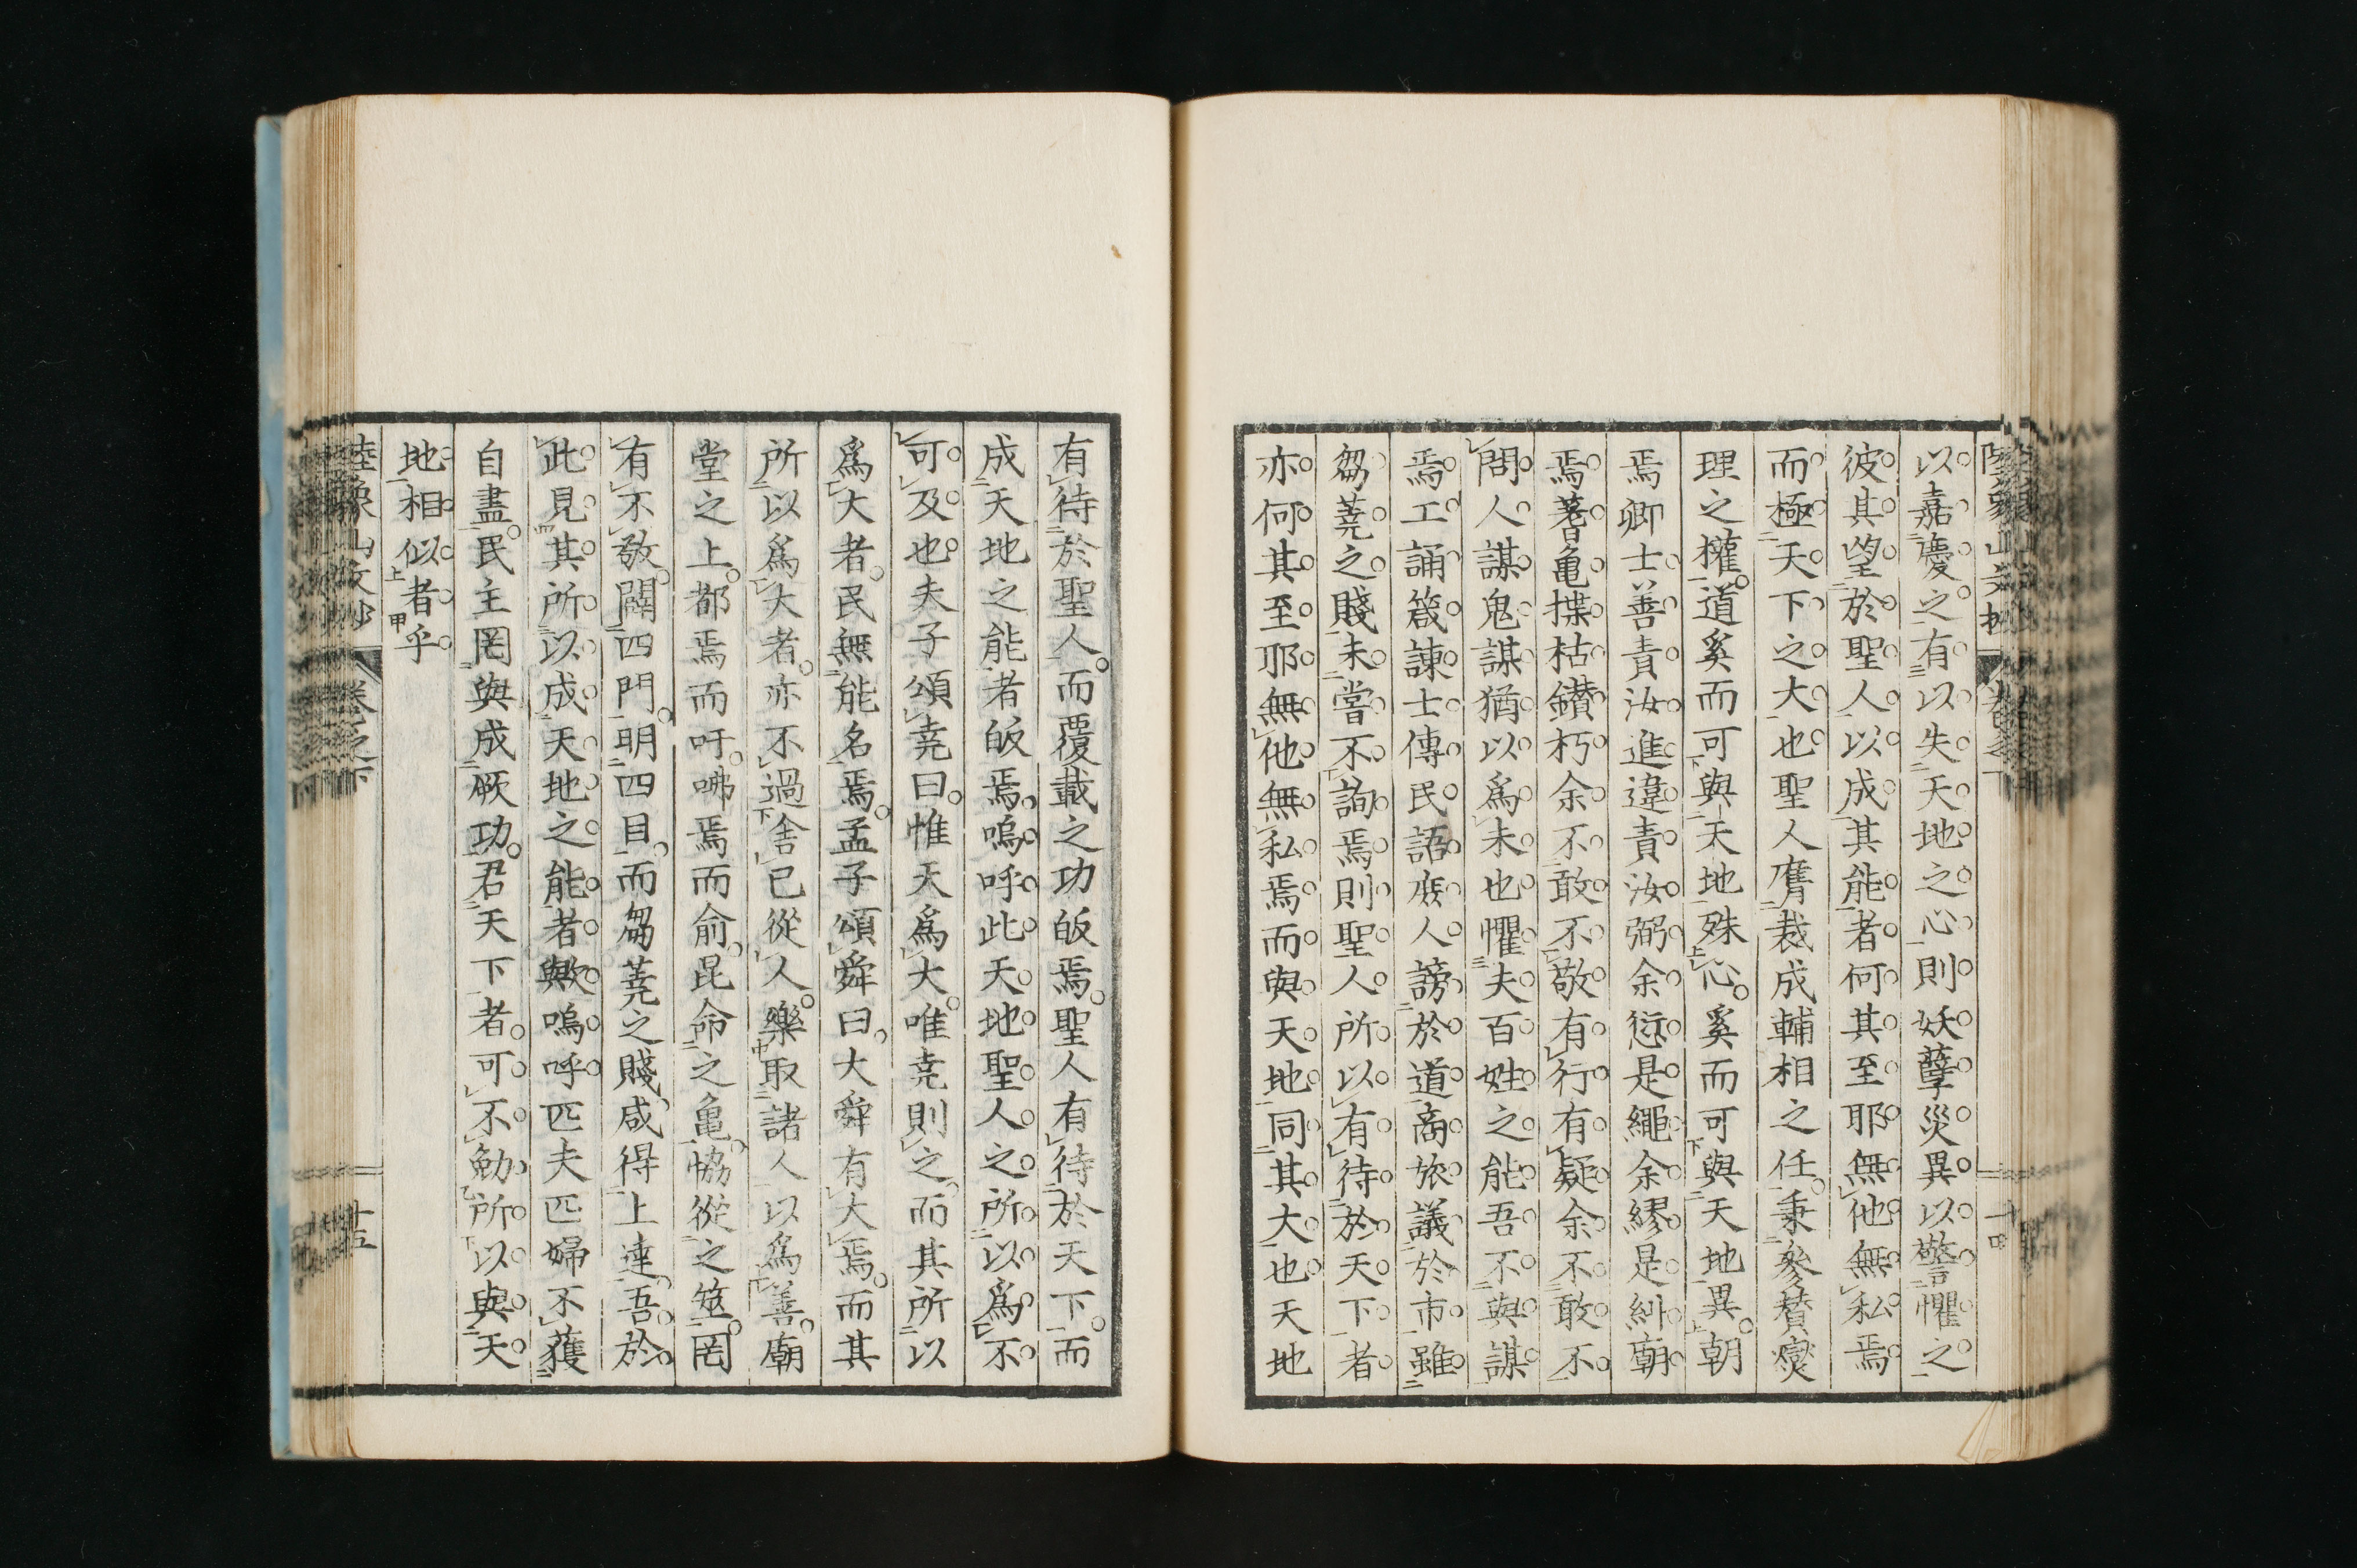 以嘉慶之有以失天地之心則妖孽災異以警懼之
彼其望於聖人以成其能者何其至耶無他無私焉
而極天下之大也聖人膺裁成輔相之任秉參賛燮
理之權道奚而可與天地殊心奚而可與天地異朝
焉卿士善責汝進違責汝弼余愆是繩余繆是糾廟
焉蓍亀揲枯鑚朽余不敢不敬有行有疑余不敢不
問人謀鬼謀猶以爲未也懼夫百姓之能吾不與謀
焉工誦箴諫士傳民語庶人謗於道商旅議於市雖
芻蕘之賤未嘗不詢焉則聖人所以有待於天下者
亦何其至耶無他無私焉而與天地同其大也天地
有待於聖人而覆載之功皈焉聖人有待於天下而
成天地之能者皈焉嗚呼此天地聖人之所以爲不
可及也夫子頌堯曰惟天爲大唯堯則之而其所以
爲大者民無能名焉孟子頌舜曰大舜有大焉而其
所以爲大者亦不過舎已從人樂取諸人以爲善廟
堂之上都焉而吁咈焉而俞昆命之亀恊從之筮罔
有不敎闢四門明四目而芻蕘之賤咸得上達吾於
此見其所以成天地之能者歟嗚呼匹夫匹婦不獲
自盡民主罔與成厥功君天下者可不勉所以與天
地相似者乎
陸象山文抄 卷之下 十五